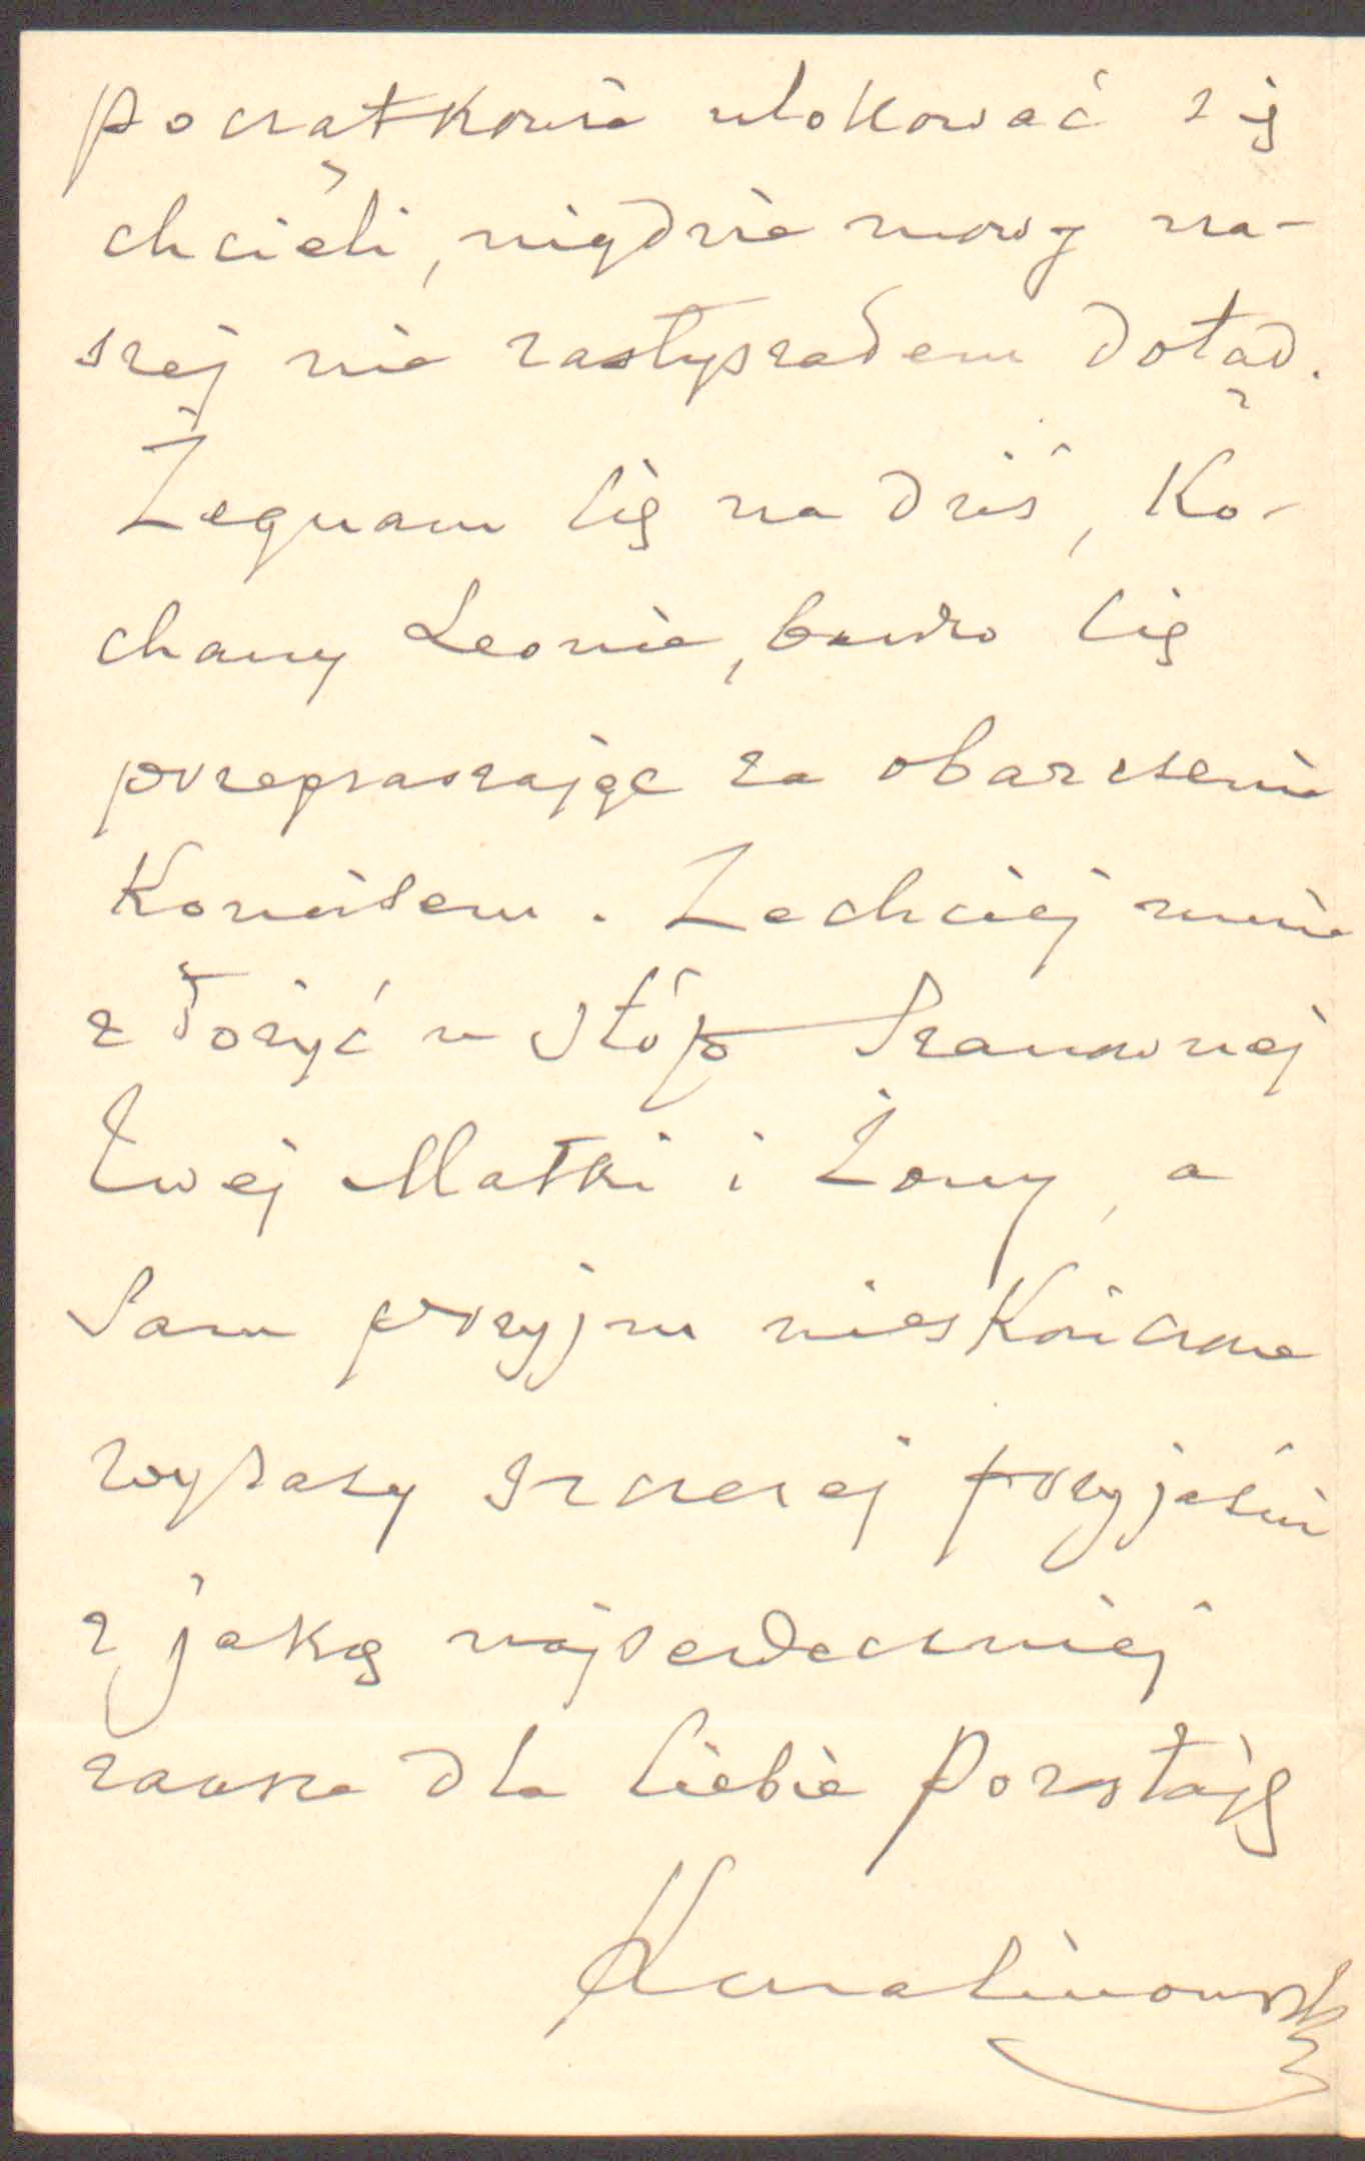 początkowie ulokować się
chcieli, nigdzie mowy na-
szej nie zasłyszałem dotąd.
Żegnam Cię na dziś, Ko-
chany Leonie, bardzo Cię
przepraszając za obarczenie
Komisem. Zechciej mnie
złożyć u stóp Szanownej
Twej Matki i Żony, a
Sam przyjm nieskończone
wyrazy szczerej przyjaźni
z jaką najserdeczniej
zawsze dla Ciebie pozostaję